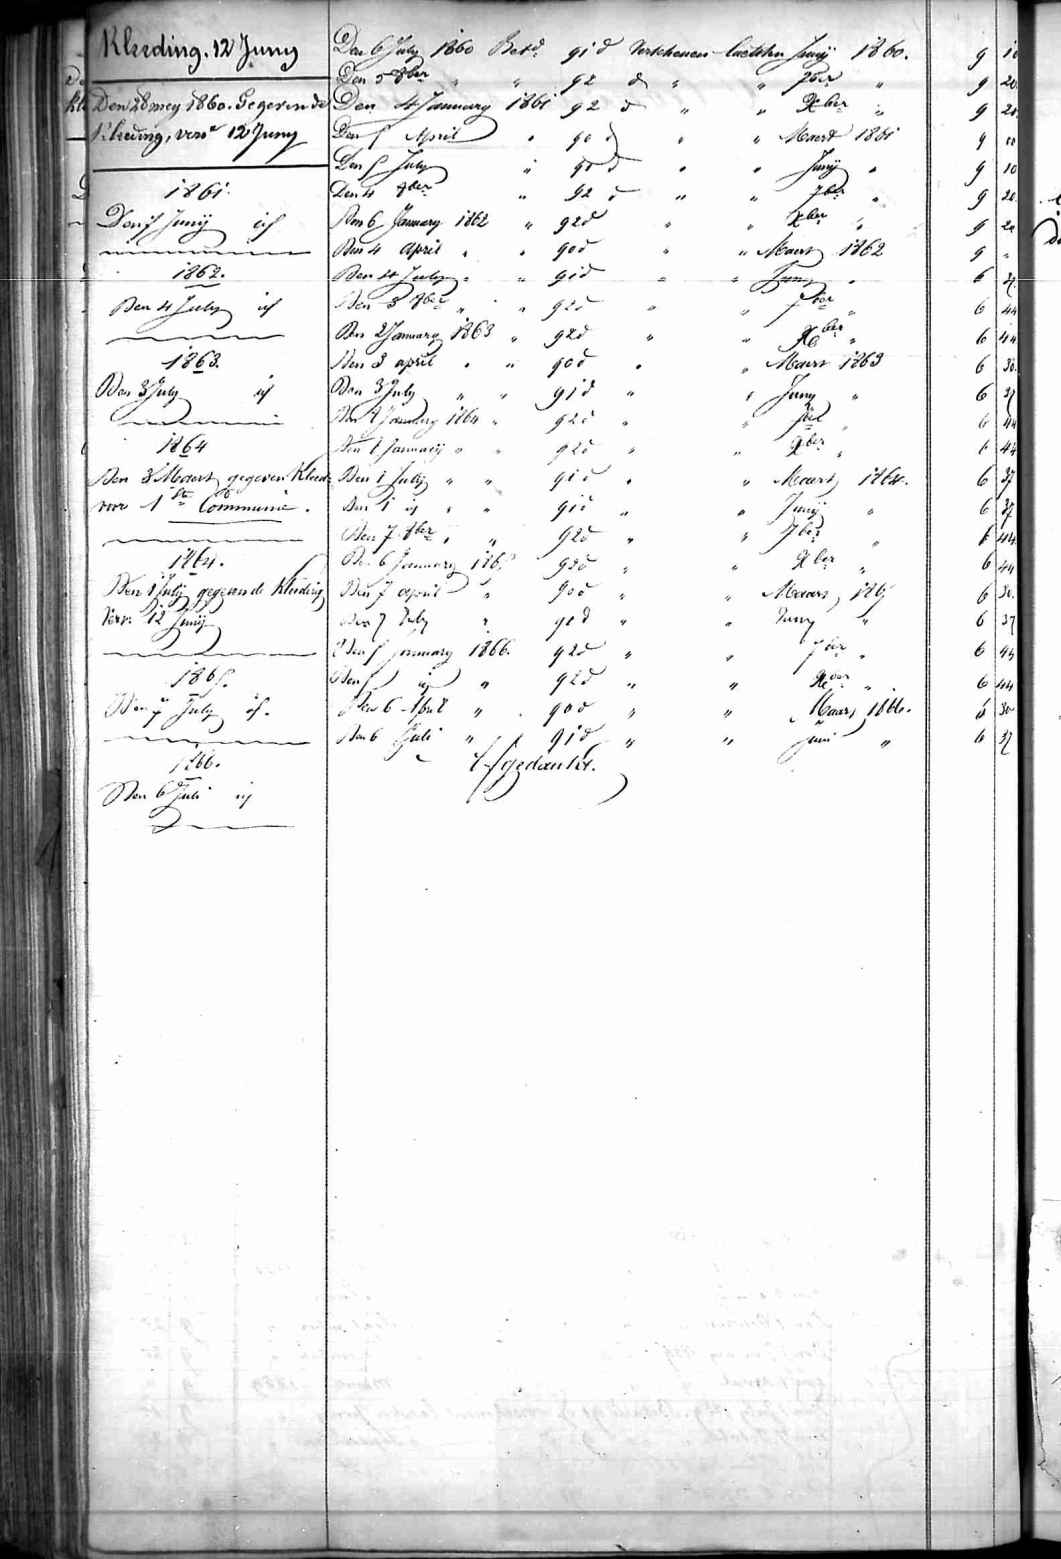 Kleeding. 12 Juny
Den 28 mey 1860. Gegeven de
Kleeding, verv. 12 Juny
1861.
Den 5 Junij id
1862.
Den 4 July id
1863.
Den 3 July id
1864
Den 3 Maert gegeven Kleed.
voor 1ste Communie.
1864.
Den 1 July gegeven de Kleeding
Verv. 12 Junij
1865.
Den 7 July id.
1866.
Den 6 Juli id
Den 6 July 1860 Betd. 91 d Verschenen laetsten Junij 1860. 9 10
Den 5 8ber " " 92 d " " 7ber " 9 20
Den 4 January 1861 92 d " " Xber " 9 20
Den 5 April " 90 d " " Maert 1861 9
Den 5 July " 90 d " " Junij " 9 10
Den 4 8ber " 92 d " " 7ber " 9 20
Den 6 January 1862 " 92 d " " Xber " 9 20
Den 4 April " " 90 d " " Maert 1862 9 "
Den 4 July " " 91 d " " Juny " 6 37
Den 3 8ber " " 92 d " " 7ber " 6 44
Den 2 January 1863 " 92 d " " Xber " 6 44
Den 3 april " " 90 d " " Maert 1863 6 30
Den 3 July " " 91 d " " Juny " 6 37
Den January 1864 " 92 d " 7ber " 6 44
Den 1 Januarij " " 92 d " " Xber " 6 44
Den 1 July " " 91 d " " Maert 1864. 6 37
Den 1 id " " 91 d " " Junij " 6 37
Den 7 8ber " " 92 d " " 7ber " 6 44
Den 6 January 1865 92 d " " Xber " 6 44
Den 7 april " 90 d " " Maart 1865 6 30
Den 7 July " 91 d " " Juny " 6 37
Den 5 January 1866. 92 d " " 7ber " 6 44
Den 5 id " 92 d " " Xber " 6 44
Den 6 April " 90 d " " Maart 1866. 6 30
Den 6 Juli " 91 d " " Juni " 6 37
Afgedankt.